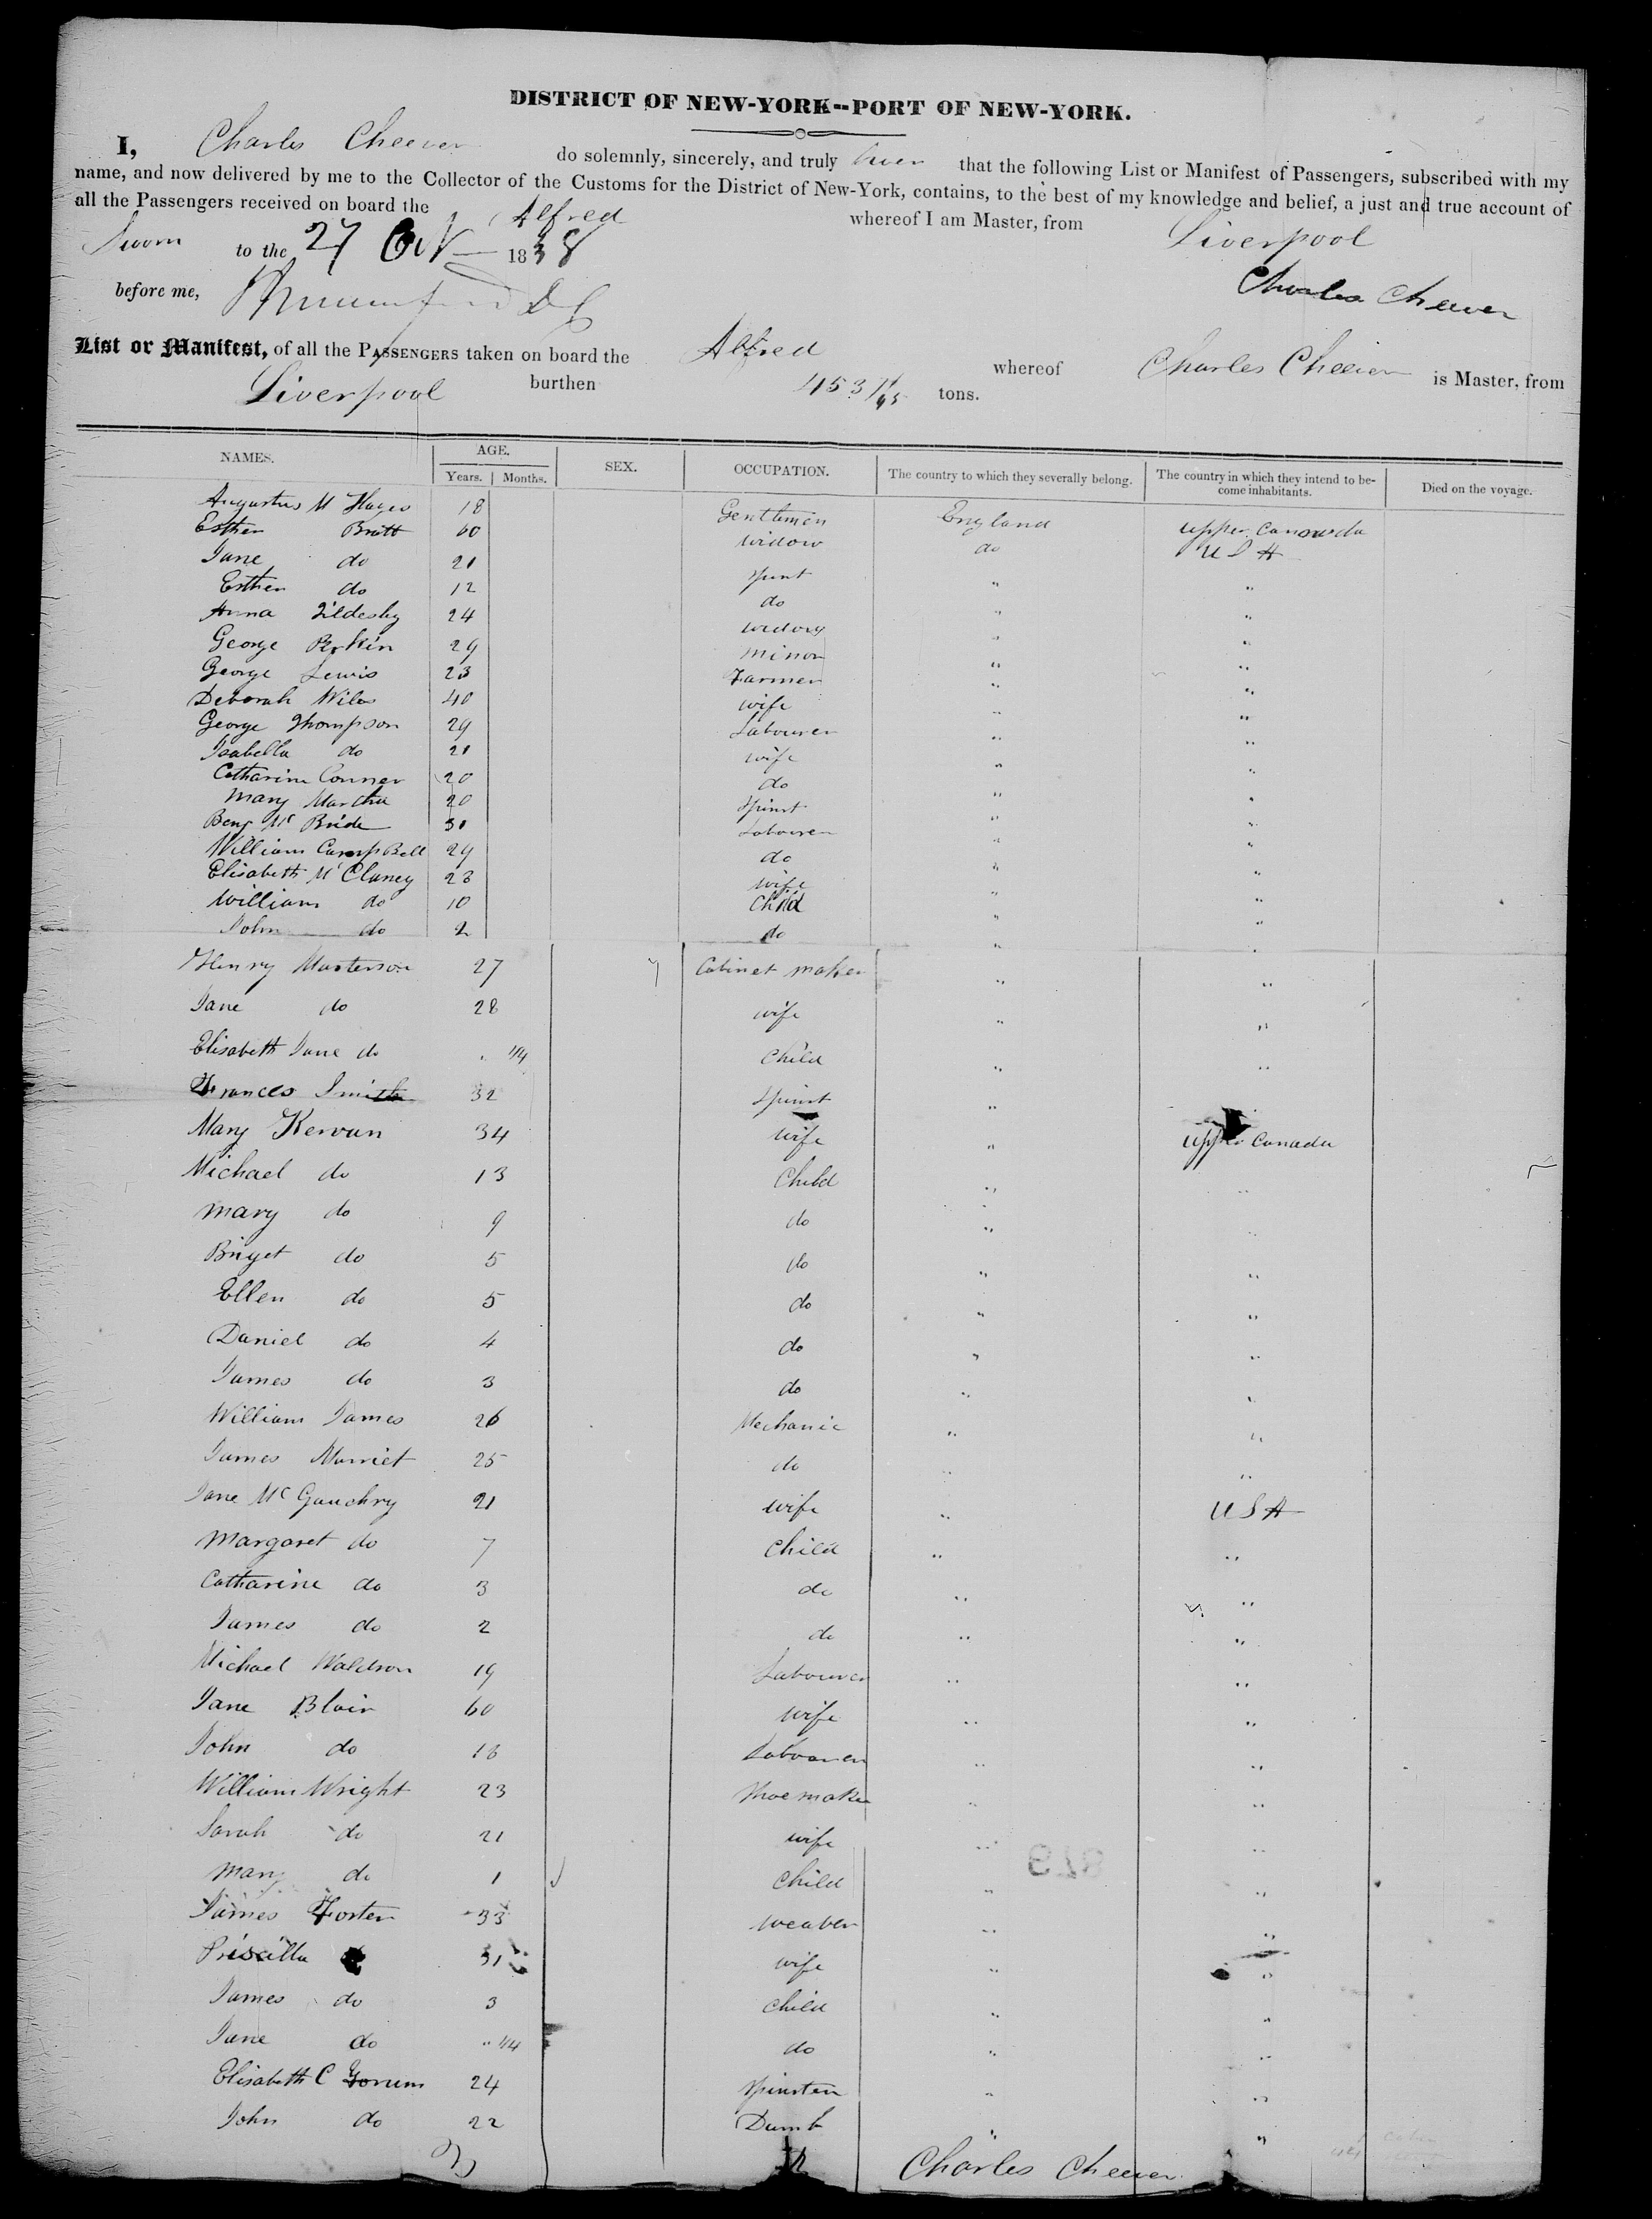 DISTRICT OF NEW-YORK--PORT OF NEW-YORK.
I, Charles Cheever do solemnly, sincerely, and truly swear that the following List or Manifest of Passengers, subscribed with my
name, and now delivered by me to the Collector of the Customs for the District of New-York, contains, to the best of my knowledge and belief, a just and true account of
all the Passengers received on board the Alfred whereof I am Master, from Liverpool
Sworn to the 27 Oct 1838
before me, Charles Cheever
List or Manifest, of all the PASSENGERS taken on board the Alfred whereof Charles Cheever is Master, from
Liverpool burthen 453 tons.
NAMES. AGE. Years. Months. SEX. OCCUPATION. The country to which they severally belong. The country in which they intend to become inhabitants. Died on the voyage.
Augustus M Hayes 18 Gentlemen England upper Canada
Esther Britt 60 widow do U S A
Jane do 21 spint " "
Esther do 12 do " "
Anna Tildesley 24 widow " "
George Perkin 29 minor " "
George Lewis 23 Farmer " "
Deborah Wiles 40 wife " "
George Thompson 29 Labourer " "
Isabella do 21 wife " "
Catharine Conner 20 do " "
Mary Martha 20 spinst " "
Benj Mc Bride 31 Labourer " "
William CampBell 29 do " "
Elisabeth Mc Claney 23 wife " "
William do 10 Child " "
John do 2 do " "
Henry Masterson 27 Cabinet maker " "
Jane do 28 wife " "
Elisabeth Jane do 1/4 Child " "
Frances Smith 32 spinst "
Mary Kervan 34 wife " upper Canada
Michael do 13 Child " "
Mary do 9 do " "
Briget do 5 do " "
Ellen do 5 do " "
Daniel do 4 do " "
James do 3 do " "
William James 26 Mechanic " "
James Marriet 25 do " "
Jane Mc Gauchry 21 wife " U S A
Margaret do 7 Child " "
Catharine do 3 do " "
James do 2 do " "
Michael Waldron 19 Labourer " "
Jane Blair 60 wife " "
John do 18 Labourer " "
William Wright 23 Shoe maker " "
Sarah do 21 wife " "
Mary do 1 Child " "
James Forster 33 weaver " "
Priscilla do 31 wife " "
James do 3 Child " "
Jane do 1/4 do " "
Elisabeth C Gorum 24 spinster " "
John do 22 Dumb " "
Charles Cheever